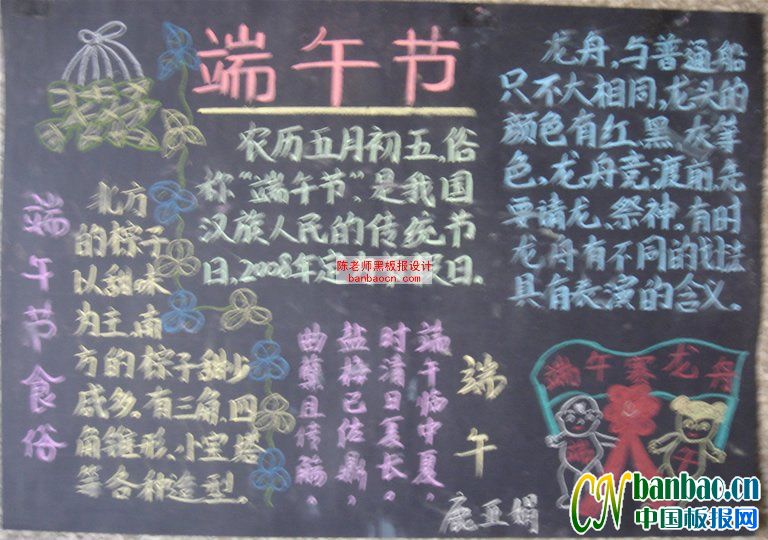 端午节
农历五月初五,俗
称“端午节”,是我国
汉族人民的传统节
日,2008年定 假日.
陈老师黑板报设计
banbaocn.com
龙舟,与普通船
只不大相同,龙头的
颜色有红、黑、灰等
色、龙舟竞渡前,先
要请龙、祭神.有时
龙舟有不同的划法
具有表演的含义.
端午节食俗
北方
的粽子
以甜味
为主,南
方的粽子甜少
咸多.有三角、四
角锥形、小宝塔
等各种造型.
端午
端午临中夏,
时清日复长。
盐梅已佐鼎,
曲糵且传觞。
鹿亚娟
端午赛龙舟
CN banbao.cn
中国板报网